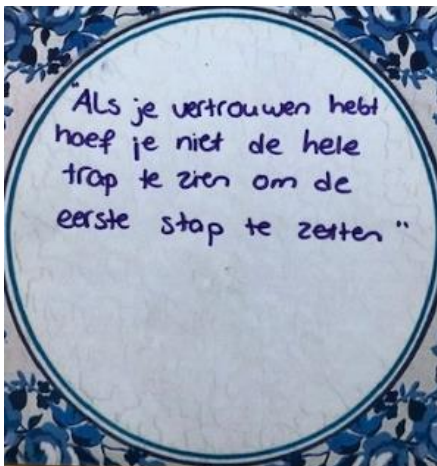 "Als je vertrouwen hebt
hoef je niet de hele
trap te zien om de
eerste stap te zetten"